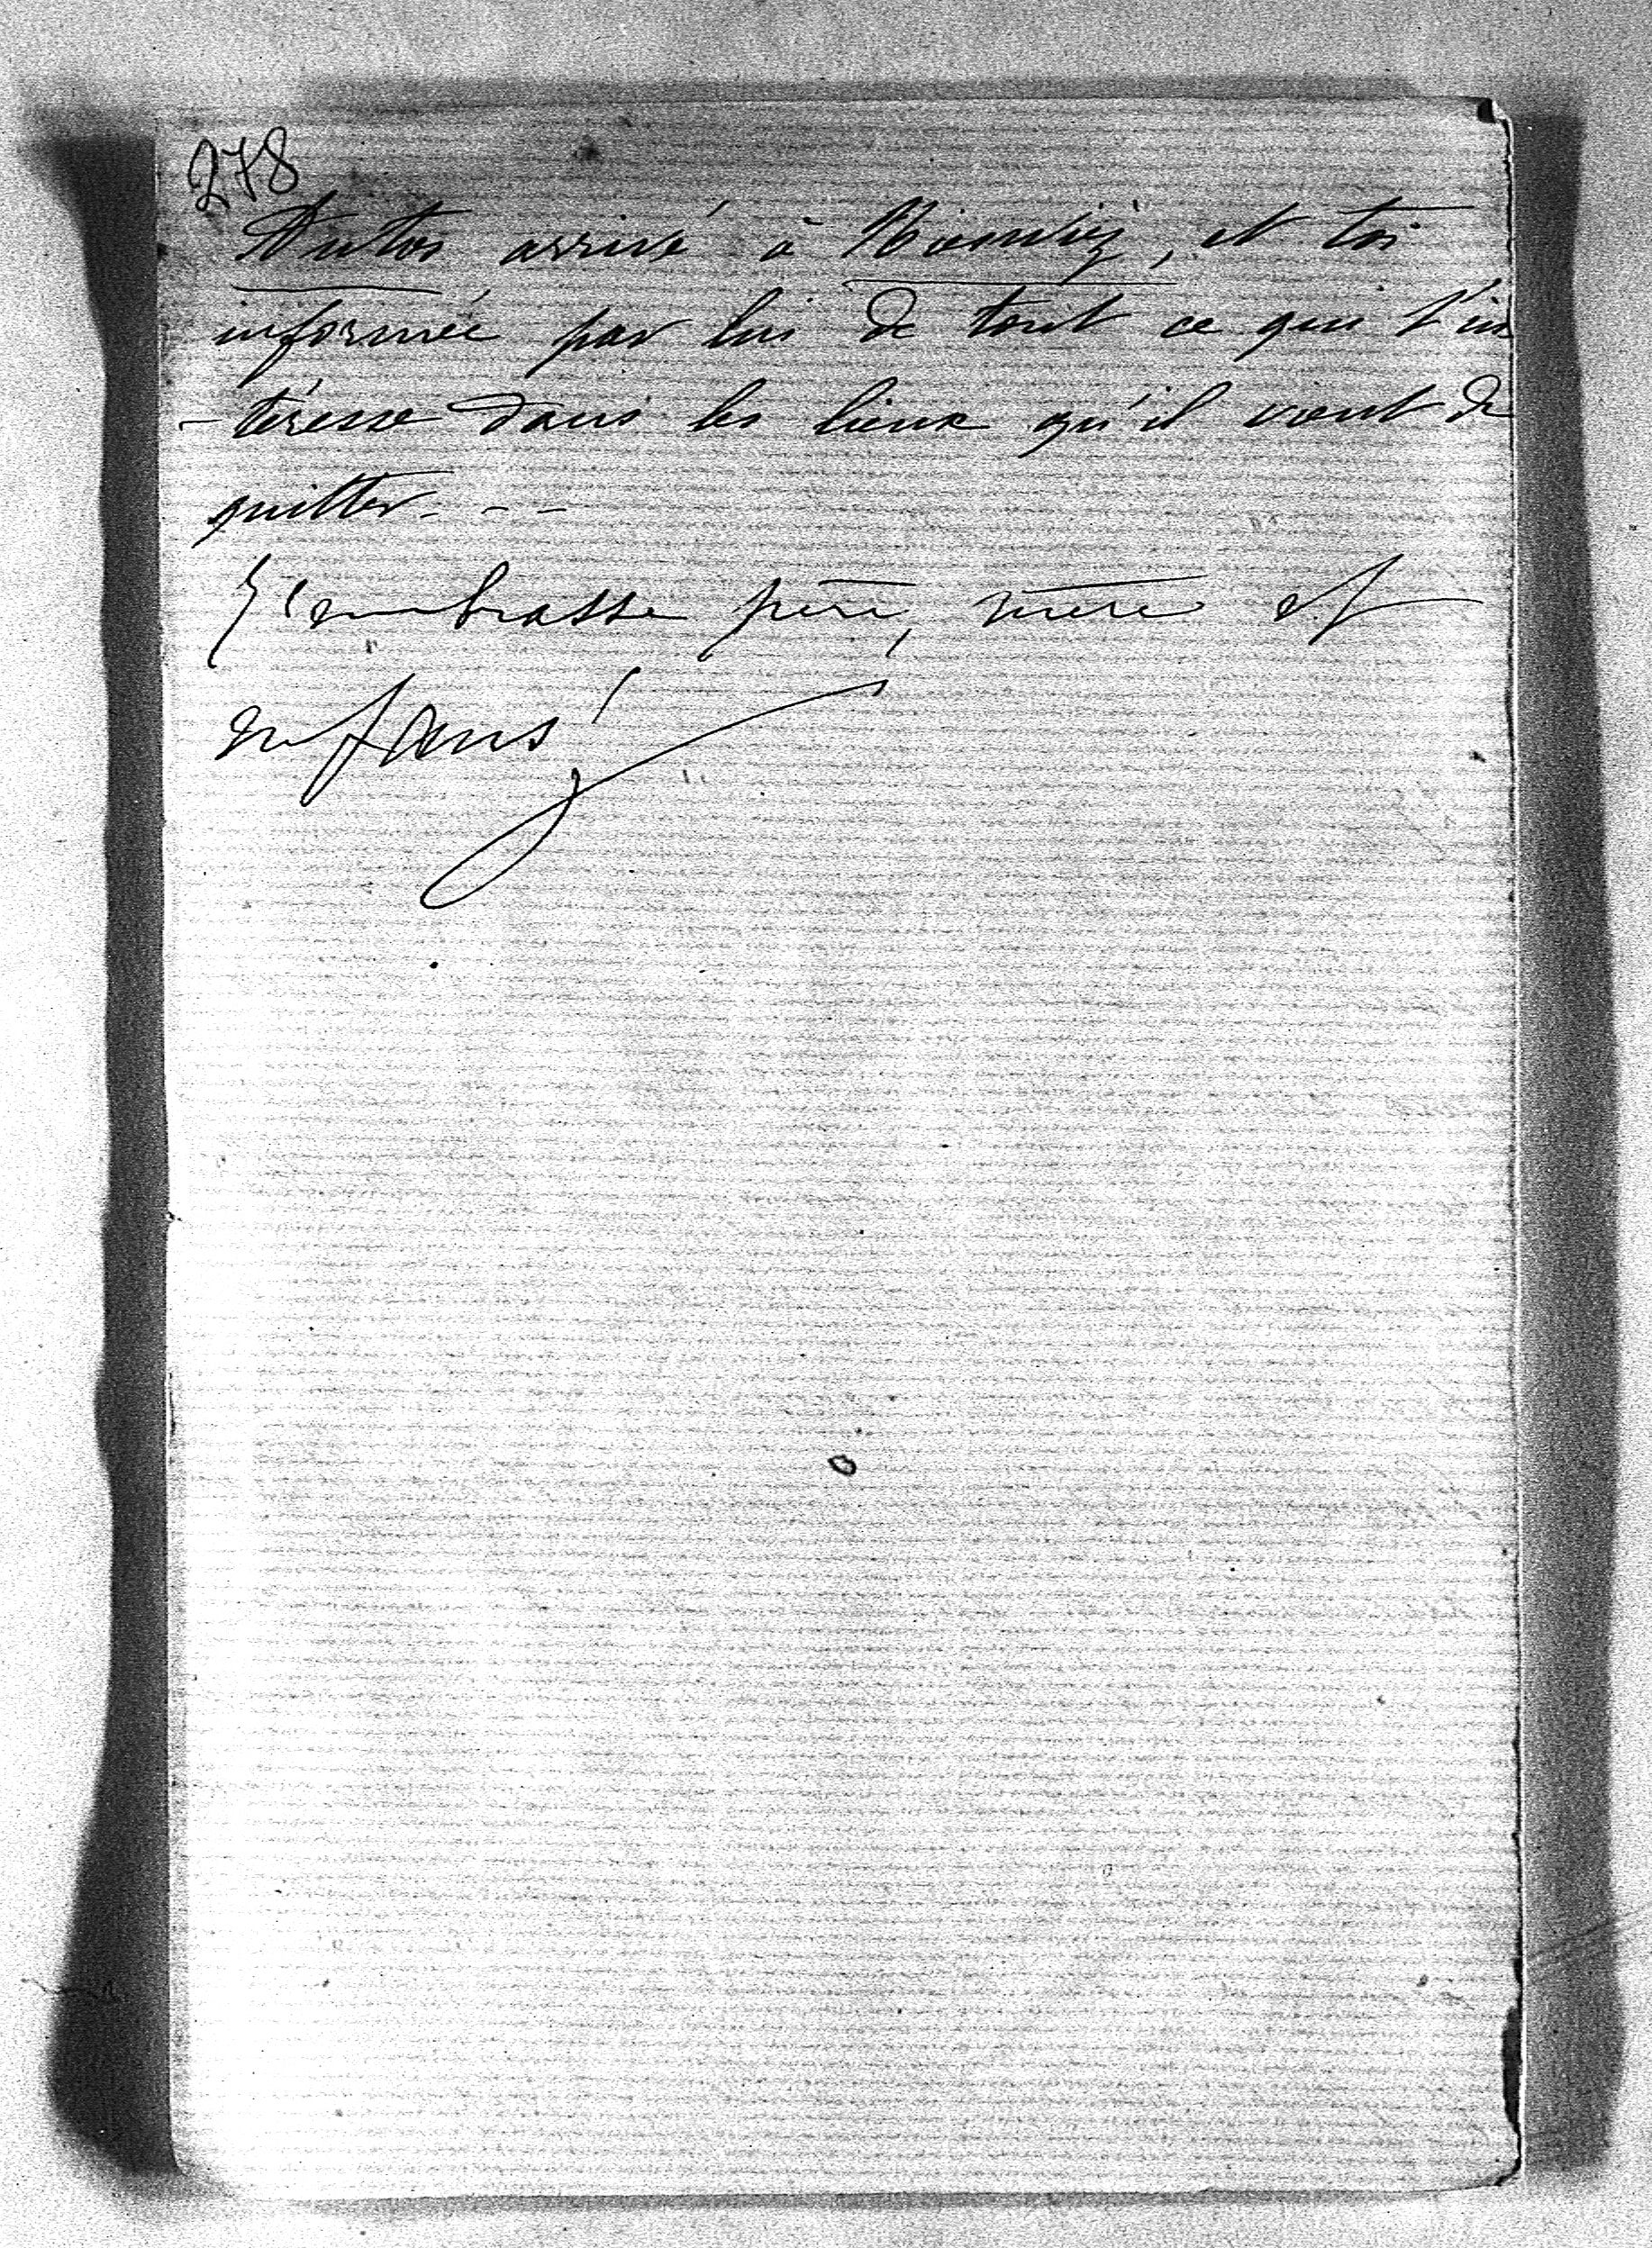 278
Antos arrivé à Nieswiéj, et toi
informée par lui de tout ce qui t'in
-téresse dans les lieux qu'il vient de
quitter - - -
J'embrasse père, mère et
enfans!